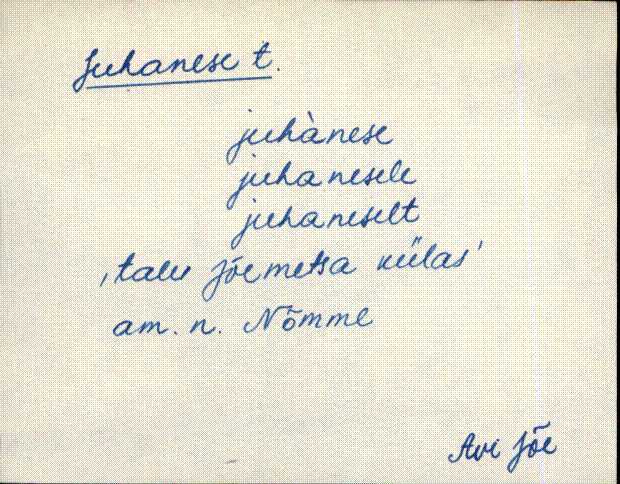 Juhanese t.
juhànese
juhanesele
juhaneselt
, talu Jõemetsa külas'
am. n. Nõmme
Avi Jõe